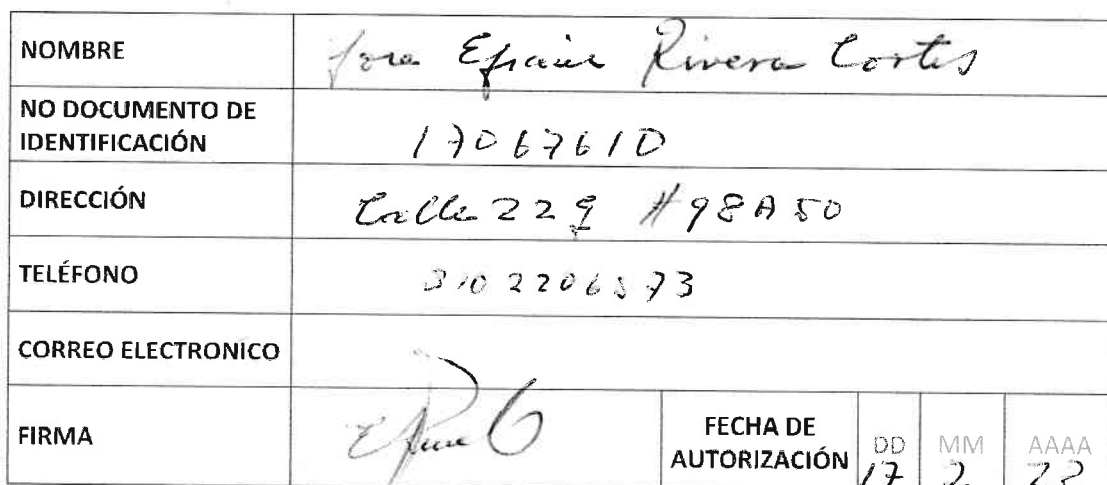 NOMBRE Jose Efrain Rivera Cortes
NO DOCUMENTO DE
IDENTIFICACIÓN 17067610
DIRECCIÓN Calle 22g #98A 50
TELÉFONO 3102206573
CORREO ELECTRONICO
FIRMA
FECHA DE
AUTORIZACIÓN
DD MM AAAA
17 2 22